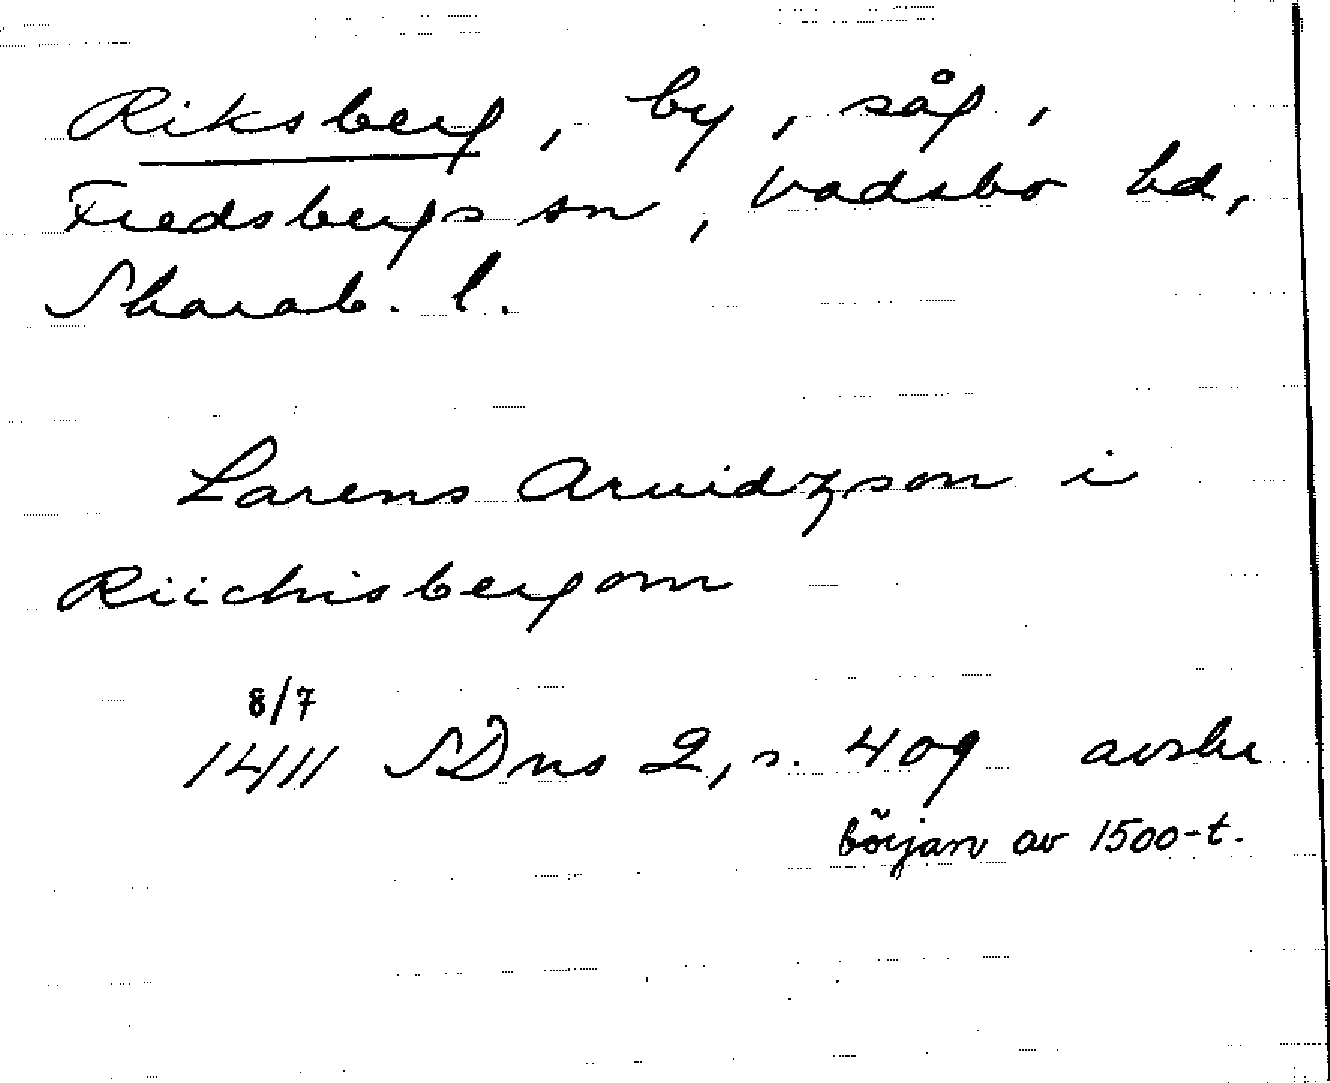 Riksberg, by, såg,
Fredsbergs sn, Vadsbo hd,
Skarab. l.
Larens Aruidzson i
Riichisbergom
8/7
1411 SDns 2, s. 409 avskr
början av 1500-t.